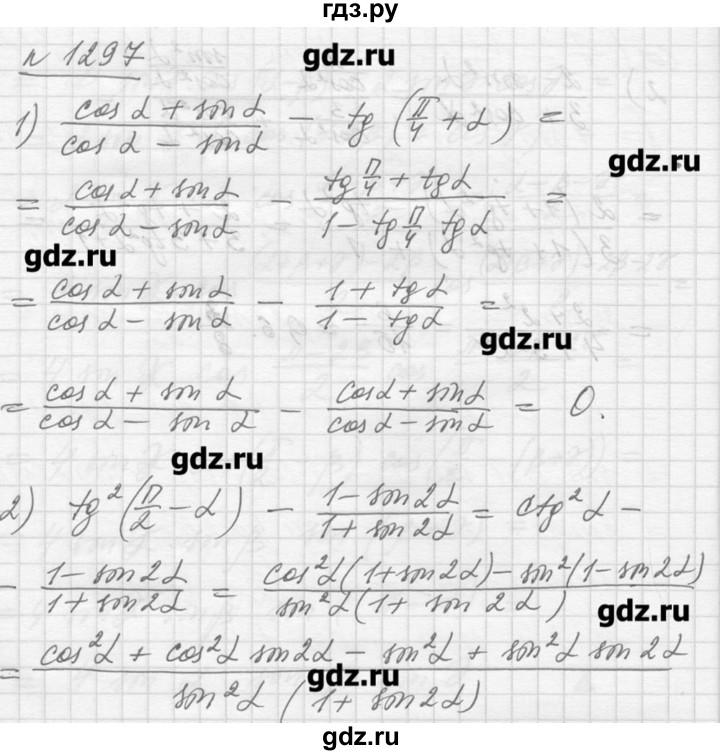 гдз.ру
n 1297 gdz.ru
1) (cos α + sin α)/(cos α − sin α) − tg (π/4 + α) =
gdz.ru
= (cos α + sin α)/(cos α − sin α) − (tg π/4 + tg α)/(1 − tg π/4 tg α) =
gdz.ru
= (cos α + sin α)/(cos α − sin α) − (1 + tg α)/(1 − tg α) =
gdz.ru
= (cos α + sin α)/(cos α − sin α) − (cos α + sin α)/(cos α − sin α) = 0.
gdz.ru
2) tg² (π/2 − α) − (1 − sin 2α)/(1 + sin 2α) = ctg² α −
− (1 − sin 2α)/(1 + sin 2α) = (cos² α (1 + sin 2α) − sin² (1 − sin 2α))/(sin² α (1 + sin 2α))
gdz.ru
= (cos² α + cos² α sin 2α − sin² α + sin² α sin 2α)/(sin² α (1 + sin 2α))
gdz.ru
gdz.ru